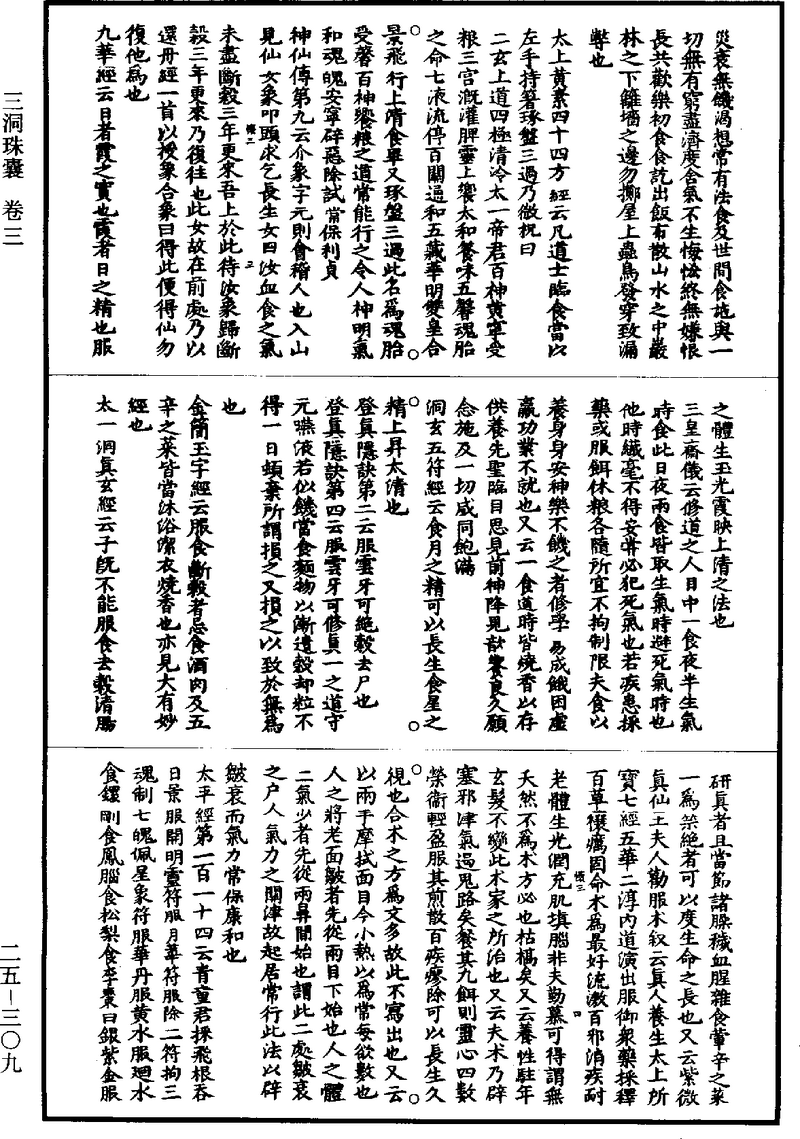 三洞珠囊 卷三
二五—三〇九
災衰無饑渴想常有法食及世間食施與一
切無有窮盡濟度含氣不生悔悋終無嫌恨
長共歡樂初食食訖出飯布散山水之中巖
林之下籬墻之邊勿擲屋上蟲鳥發穿致漏
弊也
太上黃素四十四方經云凡道士臨食當以
左手持箸琢盤三過乃微祝曰
二玄上道四極清泠太一帝君百神黃寧受
粮三宮溉灌脾靈上饗太和養味五馨魂胎
之命七液流停百關通和五藏華明雙皇合
景飛行上清食畢又琢盤三過此名爲魂胎
受馨百神饗粮之道常能行之令人神明氣
和魂魄安寧辟惡除試常保利貞
神仙傳第九云介象字元則會稽人也入山
見仙女象叩頭求乞長生女曰汝血食之氣
未盡斷穀三年更來吾上於此待汝象歸斷
穀三年更來乃復往也此女故在前處乃以
還丹經一首以授象合象曰得此便得仙勿
復他爲也
九華經云日者霞之實也霞者日之精也服
之體生玉光霞映上清之法也
三皇齋儀云修道之人日中一食夜半生氣
時食此日夜兩食皆取生氣時避死氣時也
他時纖毫不得妄嘗必犯死氣也若疾患採
藥或服餌休粮各隨所宜不拘制限夫食以
養身身安神樂不饑之者修學易成饿困虛
羸功業不就也又云一食道時皆燒香以存
供養先聖臨目思見前神降見歆饗良久願
念施及一切咸同飽滿
洞玄五符經云食月之精可以長生食星之
精上昇太清也
登真隱訣第二云服雲牙可絕穀去尸也
登真隱訣第四云服雲牙可修真一之道守
元嚥液若似饑當食麵物以漸遣穀却粒不
得一日頓棄所謂損之又損之以致於無爲
也
金簡玉字經云服食斷穀者忌食酒肉及五
辛之菜皆當沐浴潔衣燒香也亦見大有妙
經也
太一洞真玄經云子既不能服食去穀清腸
研真者且當節諸臊穢血腥雜食葷辛之菜
一爲禁絕者可以度生命之長也又云紫微
真仙王夫人勸服朮叙云真人養生太上所
寶七經五華二淳內道演出服御衆藥採釋
百草穰癘固命朮爲最好流漱百邪消疾耐
老體生光潤充肌填腦非夫勤慕可得謂無
夭然不爲朮方必也枯槁矣又云養性駐年
玄髮不變此朮家之所治也又云夫朮乃辟
塞邪津氣遏鬼路矣餐其九餌則靈心四敷
榮衛輕盈服其煎散百疾瘳除可以長生久
視也合朮之方爲文多故此不寫出也又云
以兩手摩拭面目令小熱以爲常每欲數也
人之將老面皺者先從兩目下始也人之體
二氣少者先從兩鼻間始也謂此二處皺衰
之户人氣力之關津故起居常行此法以辟
皺衰而氣力常保康和也
太平經第一百一十四云青童君採飛根吞
日景服開明靈符服月華符服除二符拘三
魂制七魄佩星象符服華丹服黃水服迴水
食鐶剛食鳳腦食松梨食李棗曰銀紫金服